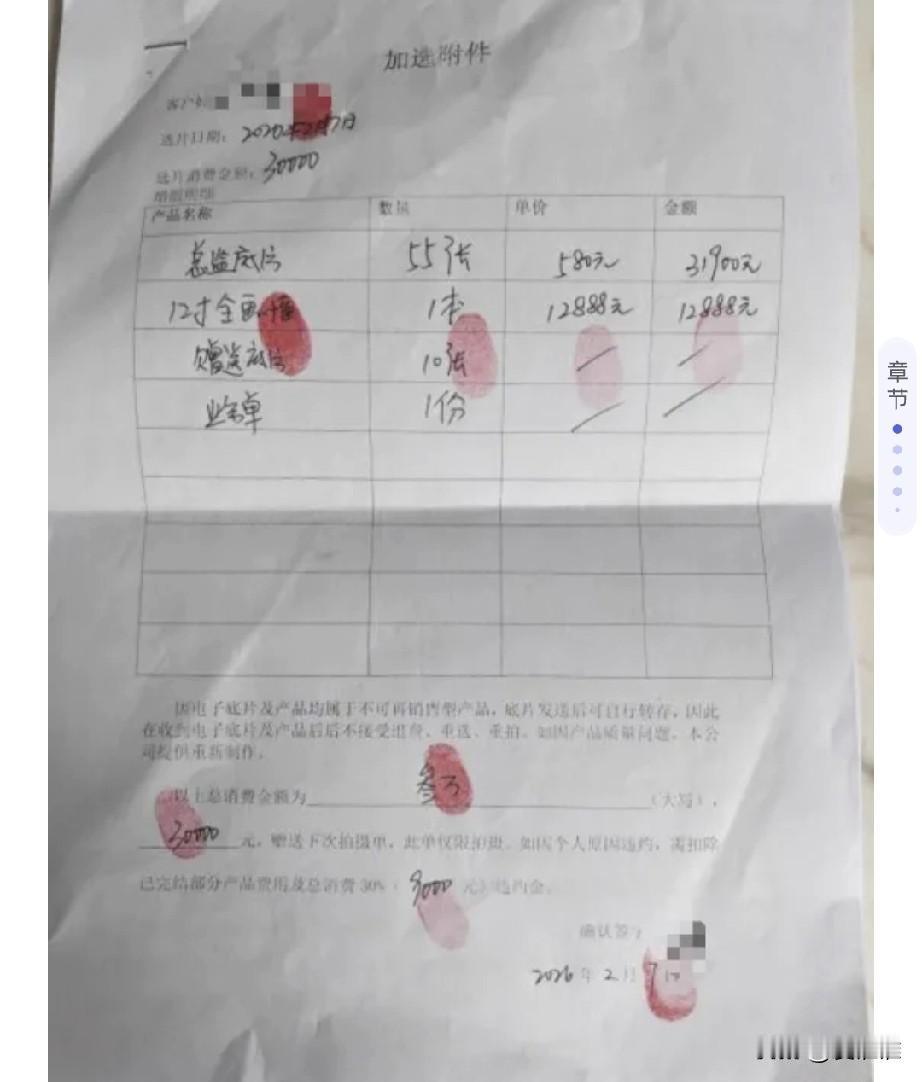 加选附件
客户
选片日期：2020年2月7日
选片消费金额：30000
增损明细
产品名称 数量 单价 金额
总监底片 55张 580元 31900元
12寸全画册 1本 12888元 12888元
赠送底片 10张
1份
因电子底片及产品均属于不可再销售型产品，底片发送后可自行转存，因此
在收到电子底片及产品后后不接受退费、重送、重拍。如因产品质量问题，本公
司提供重新制作。
以上总消费金额为 叁万 （大写），
30000 元，赠送下次拍摄单，此单仅限拍摄。如因个人原因违约，需扣除
已完结部分产品费用及总消费30%（9000 元）违约金。
确认签字
2026年2月7日
章节